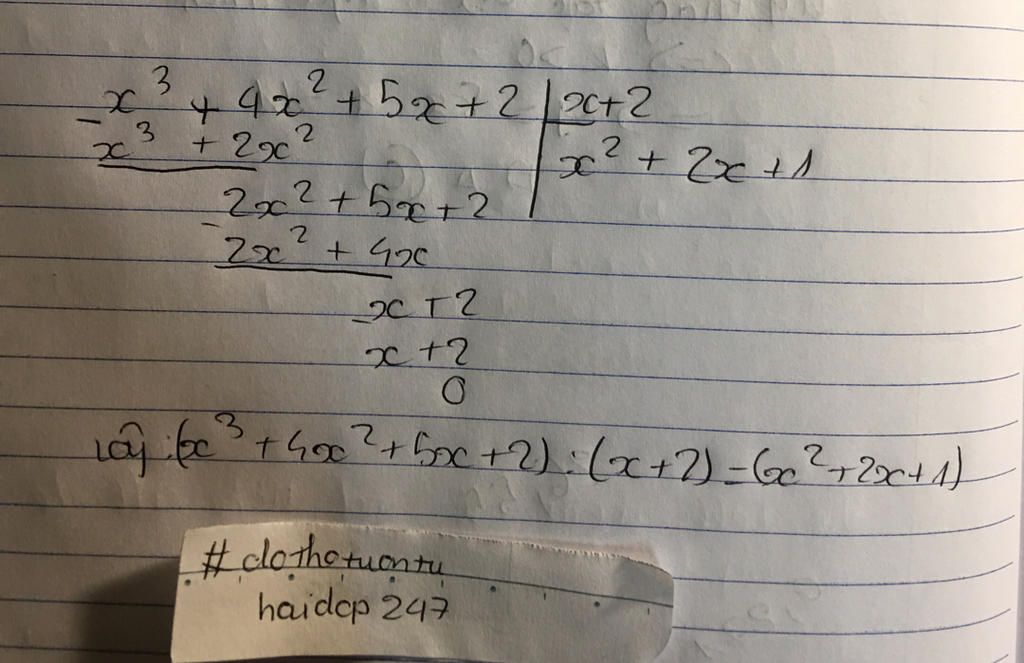 x³ + 4x² + 5x + 2 | x+2
- x³ + 2x² | x² + 2x + 1
2x² + 5x + 2
- 2x² + 4x
- x + 2
x + 2
0
Vậy: (x³ + 4x² + 5x + 2) : (x+2) = (x² + 2x + 1)
# dothotuontu
haidcp 247